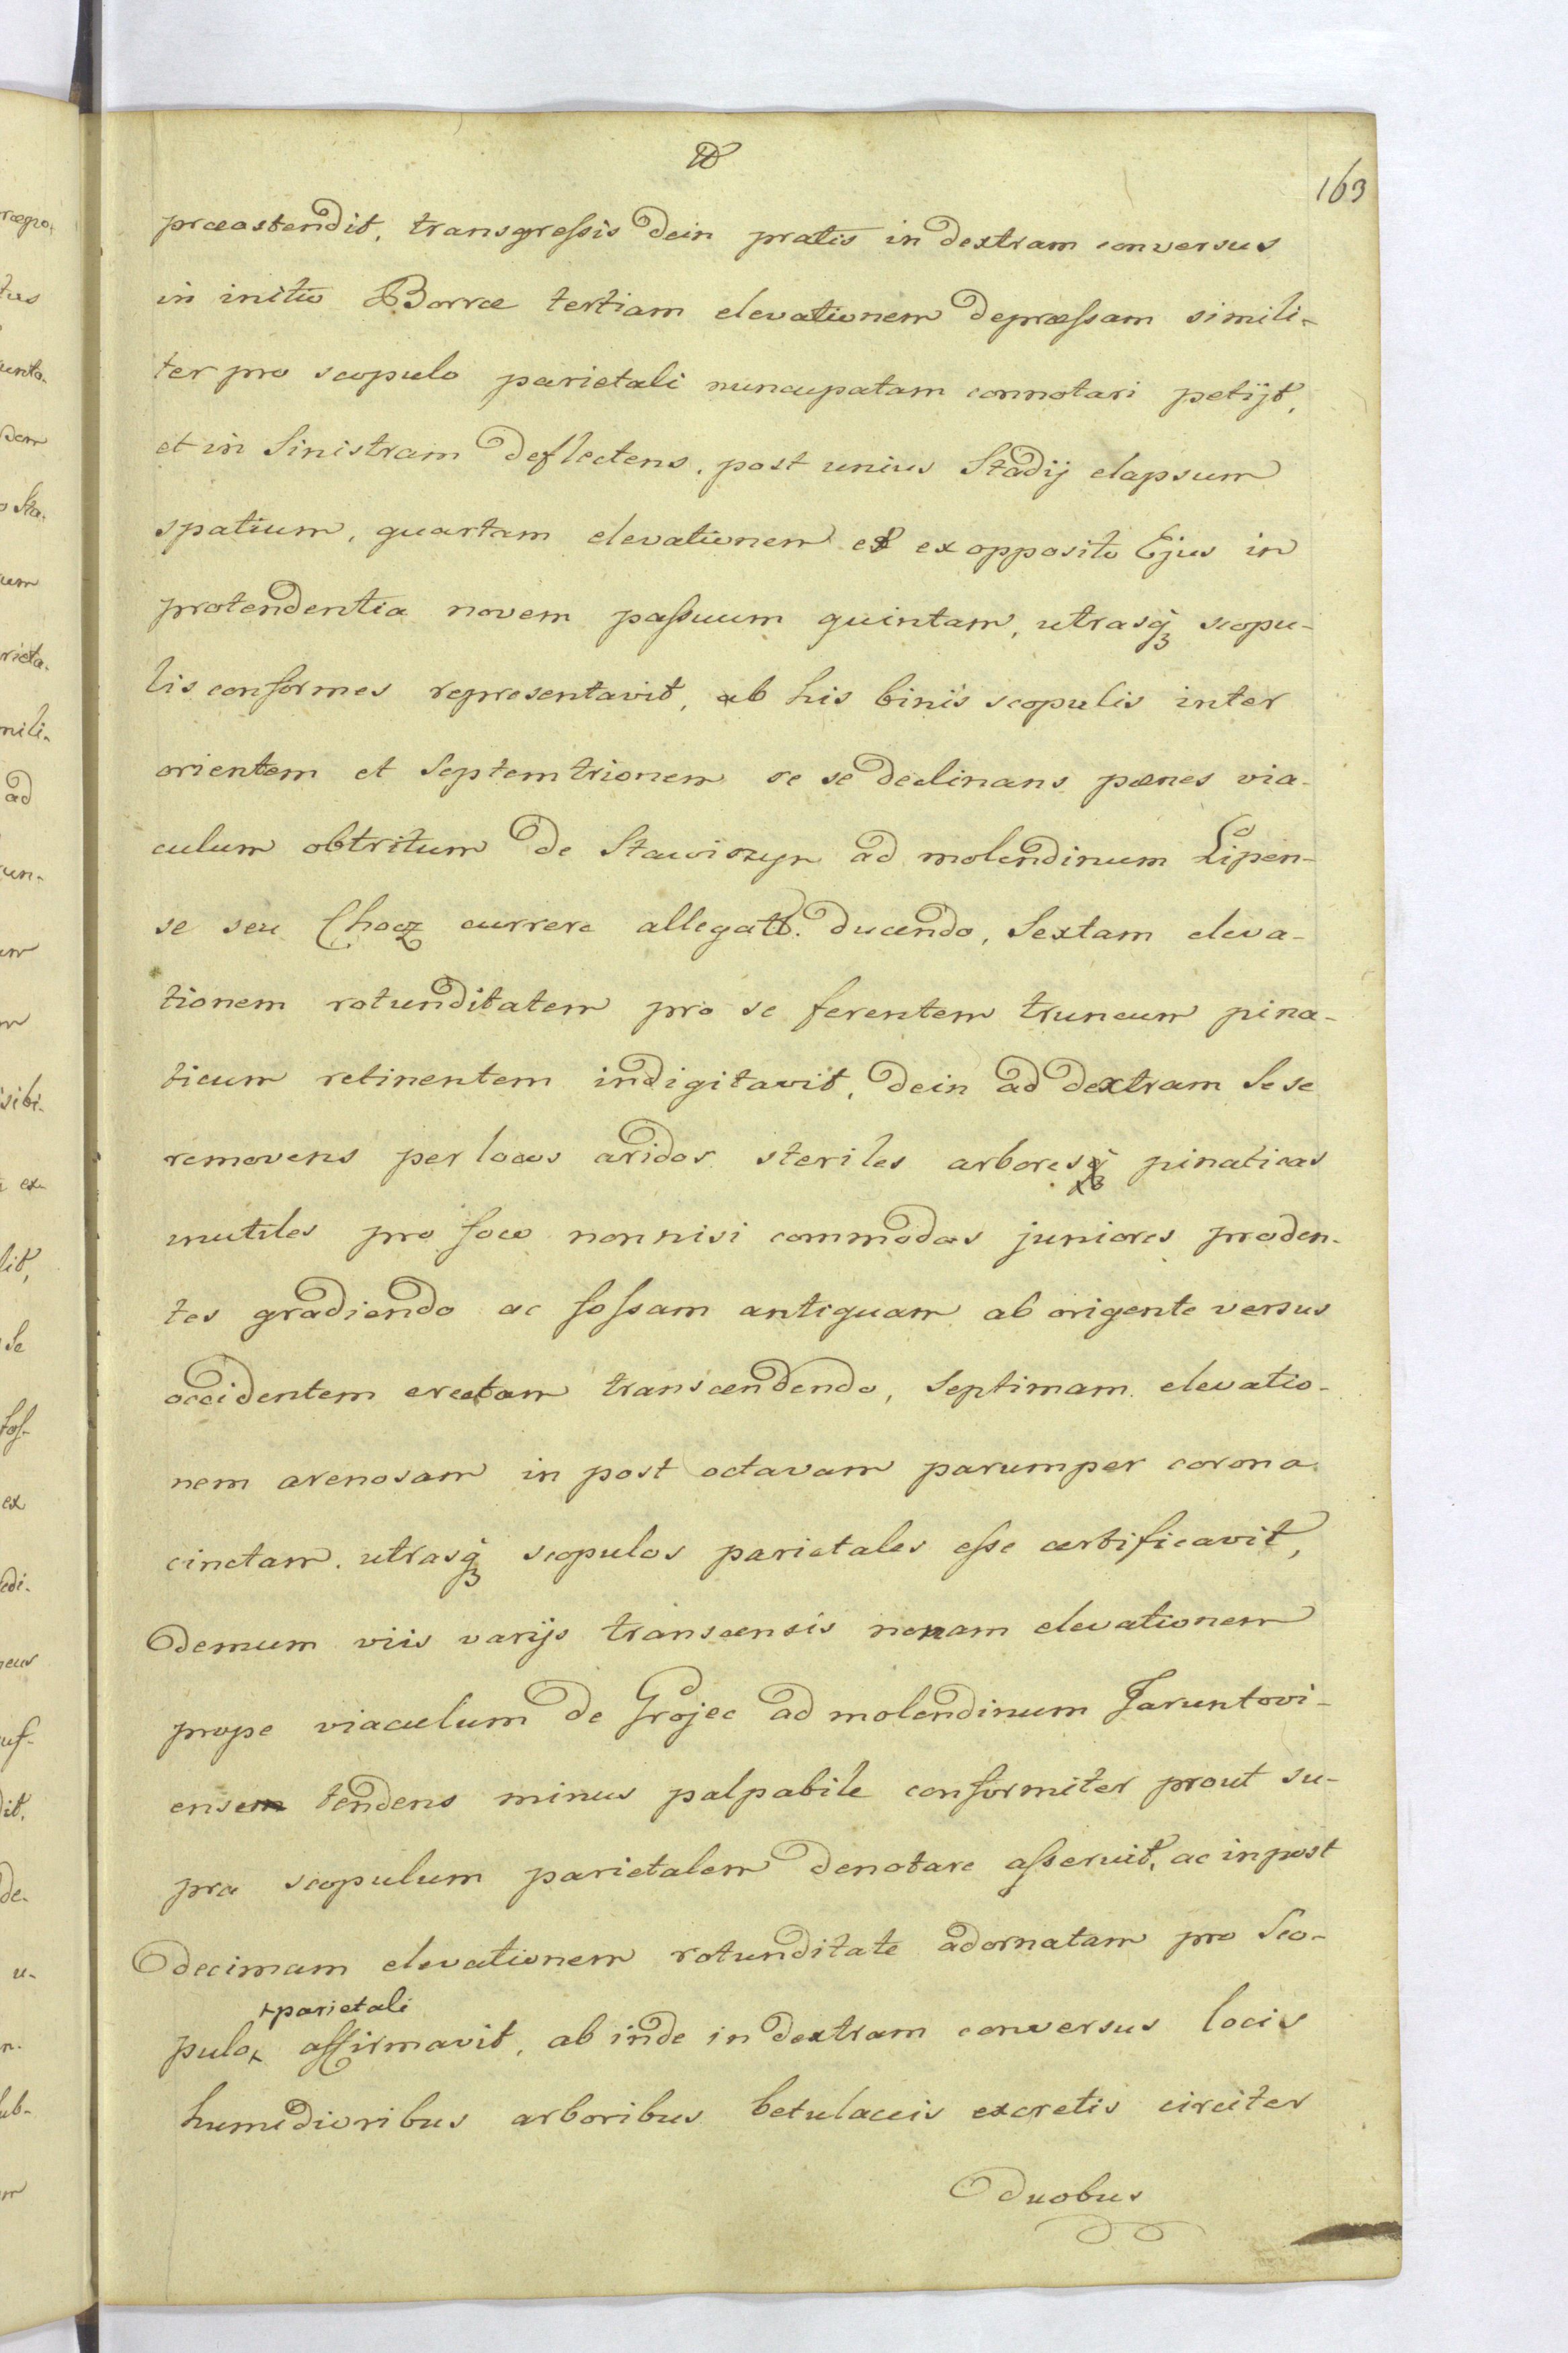 163
præostendit, transgressis dein pratis in dextram conversus
in initio Borræ tertiam elevationem depræssam simili-
ter pro scopulo parietali nuncupatam connotari petijt,
et in Sinistram deflectens, post unius Stadij elapsum
spatium, quartam elevationem et ex opposito Ejus in
protendentia novem passuum quintam, utrasq́ꝫ scopu-
lis conformes representavit, ab his binis scopulis inter
orientem et Septemtrionem se se declinans pænes via-
culum obtritum de Stawiszyn ad molendinum Lipen-
se seu Chocz currere allegatt. ducendo, Sextam eleva-
tionem rotunditatem pro se ferentem truncum pina-
ticum retinentem indigitavit, dein ad dextram Se se
removens per locos aridos steriles arboresq́ꝫ pinaticas
inutiles pro foco nonnisi commodas juniores proden-
tes gradiendo ac fossam antiquam ab origente versus
occidentem erectam transcendendo, Septimam elevatio-
nem arenosam in post octavam parumper corona
cinctam, utrasq́ꝫ scopulos parietales esse certificavit,
demum viis varijs transcensis nonam elevationem
prope viaculum de Grojec ad molendinum Jaruntovi-
ensem tendens minus palpabile conformiter prout su-
pra scopulum parietalem denotare asseruit, ac inpost
decimam elevationem rotunditate adornatam pro Sco-
+parietali
pulo+ affirmavit, ab inde in dextram conversus locis
humidioribus arboribus betulaceis excretis circiter
duobus